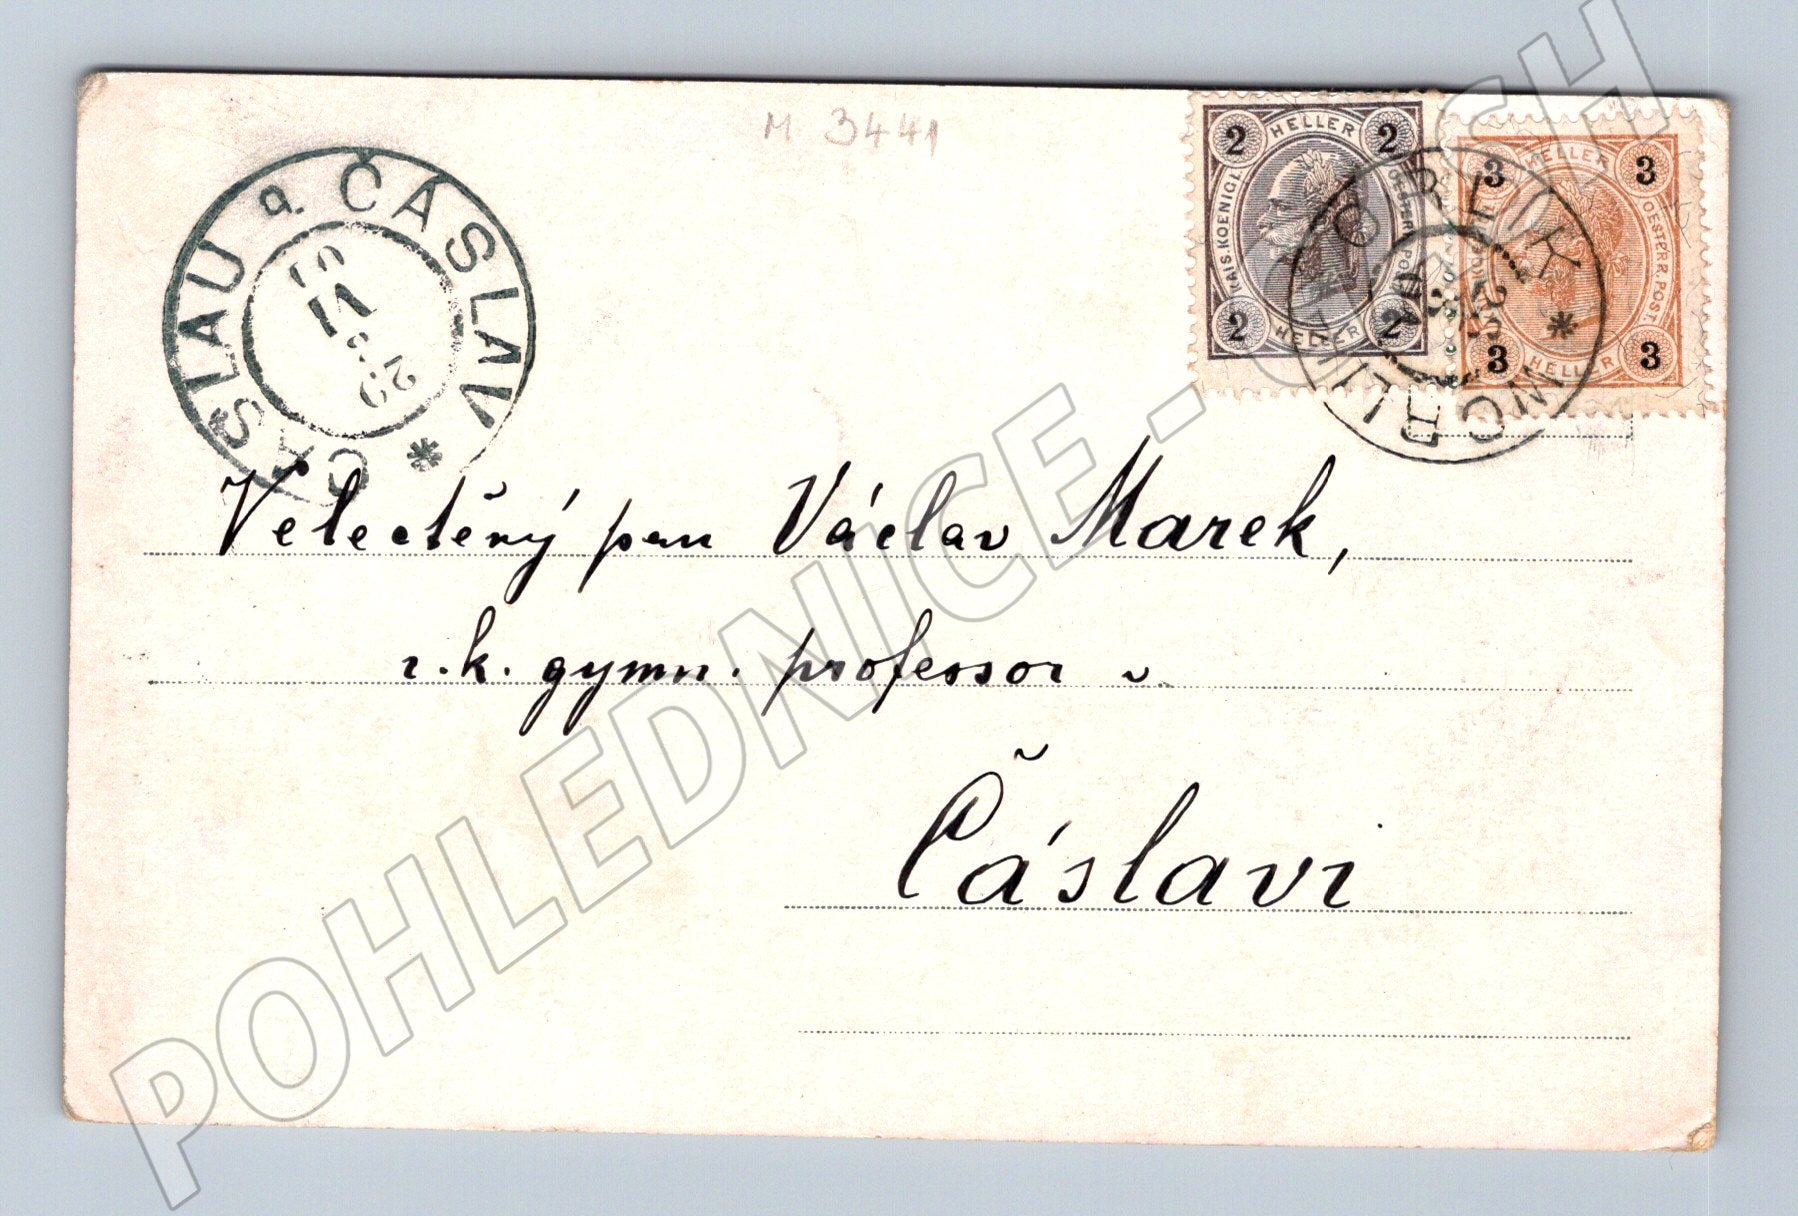 M 3441
ČASLAU a. ČÁSLAV *
29
VI
01
2 HELLER 2
KAIS. KOENIGL. OESTERR. POST.
2 HELLER 2
3 HELLER 3
OESTERR. POST.
3 HELLER 3
Velectěný pan Václav Marek,
r. k. gymn. professor v
Čáslavi
POHLEDNICE -